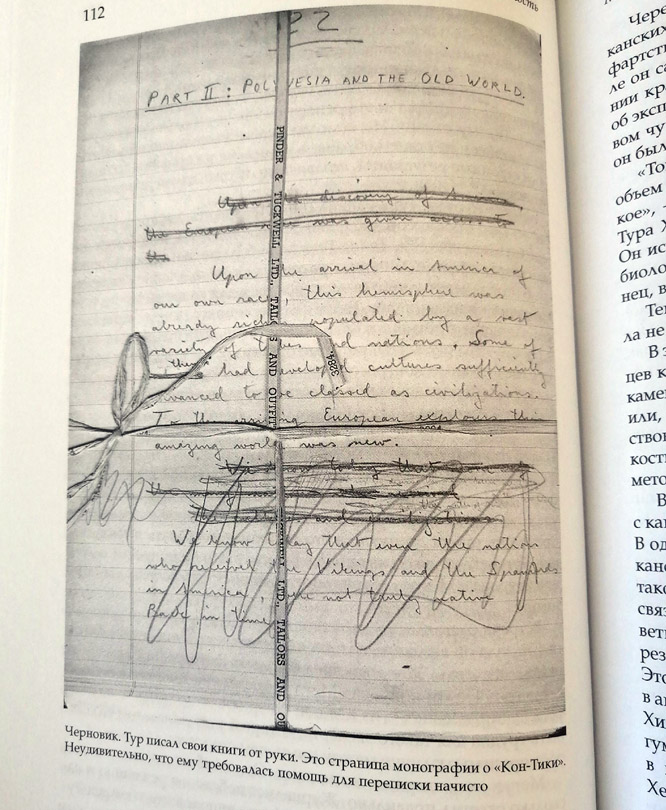 112
22
PART II: POLYNESIA AND THE OLD WORLD.
Upon the discovery of America
the European was given access to
the
Upon the arrival in America of
our own race, this hemisphere was
already richly populated by a vast
variety of tribes and nations. Some of
these had developed cultures sufficiently
advanced to be classed as civilizations.
To the arriving European explorers this
amazing world was new.
We know today that
the
We know today that even the nations
who received the Vikings and the Spaniards
in America, were not truly native
Back in time
PINDER & TUCKWELL LTD., TAILORS AND OUTFITT
LTD., TAILORS AND OU
3284.
Черновик. Тур писал свои книги от руки. Это страница монографии о «Кон-Тики».
Неудивительно, что ему требовалась помощь для переписки начисто
ость
Чере
канских
фартст
ле он са
нии кр
об эксп
вом чу
он был
«То
объем
кое», -
Тура Х
Он ис
биоло
нец, в
Те
ла не
В з
цев к
каме
или,
ство
кост
мето
В
с ка
В од
кан
тако
связ
вет
рез
Это
в а
Хи
гум
в
Хе